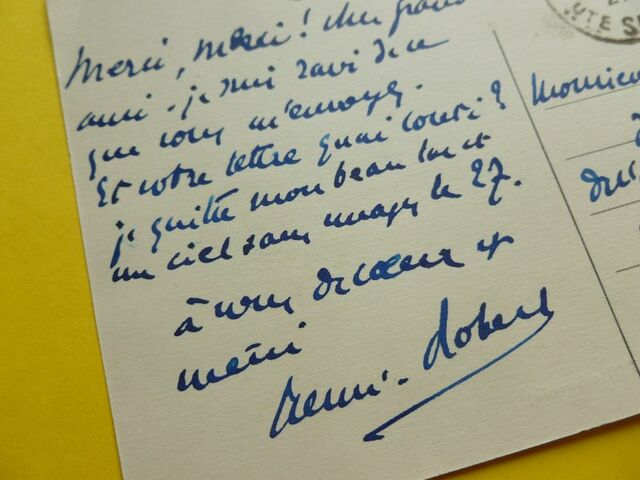 Merci, merci ! cher grand
ami. je suis ravi de ce
que vous m'envoyez.
Et votre lettre quai Conti ?
je quitte mon beau lac et
un ciel sans nuages le 27.
à vous de cœur et
merci
Henri-Robert
Monsieu
HTE S